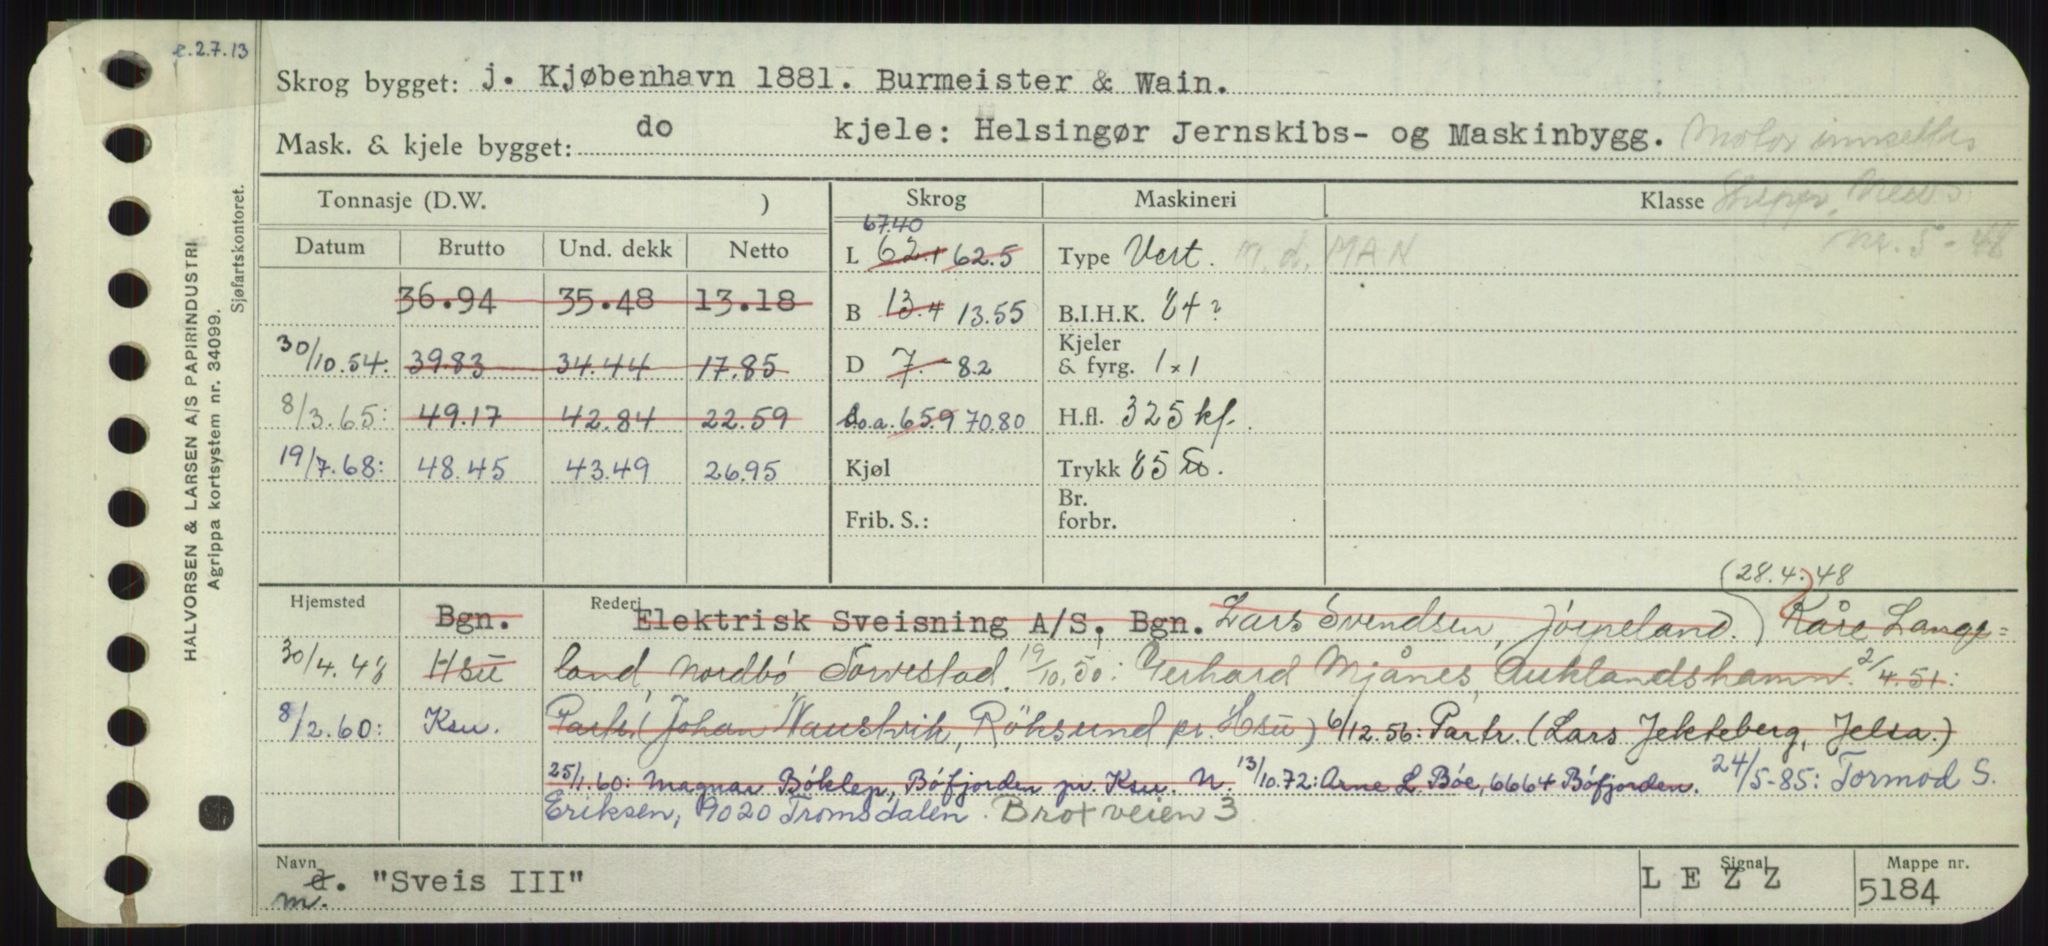 e.2.7.13
Skrog bygget: j. Kjøbenhavn 1881. Burmeister & Wain.
Mask. & kjele bygget: do kjele: Helsingør Jernskibs- og Maskinbygg. Motor innsettes
Tonnasje (D.W. ) Skrog Maskineri Klasse
nr. 5 - 48
Datum Brutto Und. dekk Netto
67.40
L 62.1 62.5 Type Vert. M.d. MAN
36.94 35.48 13.18 B 13.4 13.55 B.I.H.K. 84?
30/10.54: 39.83 34.44 17.85 D 7.- 8.2 Kjeler & fyrg. 1 x 1
8/3.65: 49.17 42.84 22.59 L.o.a. 65.9 70.80 H.fl. 325 kf.
19/7.68: 48.45 43.49 26.95 Kjøl Trykk 85 lb.
Frib. S.: Br. forbr.
(28.4.48
Hjemsted Bgn. Rederi Elektrisk Sveisning A/S, Bgn. Lars Svendsen, Jørpeland.) Kåre Lange=
30/4.48 Hsu land, Nordbö Torvestad. 19/10.50: Gerhard Mjånes, Auklandshamn. 2/4.51:
8/2.60: Ksu. Partr. (Johan Naustvik, Röksund pr. Hsu) 6/12.56: Partr. (Lars Jekteberg, Jelsa.)
25/1.60: Magnar Böklep, Böfjorden pr. Ksu. N. 13/10.72: Arne L. Böe, 6664 Böfjorden. 24/5-85: Tormod S.
Eriksen, 9020 Tromsdalen. Brotveien 3
Navn d. "Sveis III" Signal L E Z Z Mappe nr. 5184
m.
HALVORSEN & LARSEN A/S PAPIRINDUSTRI
Agrippa kortsystem nr. 34099.
Sjøfartskontoret.